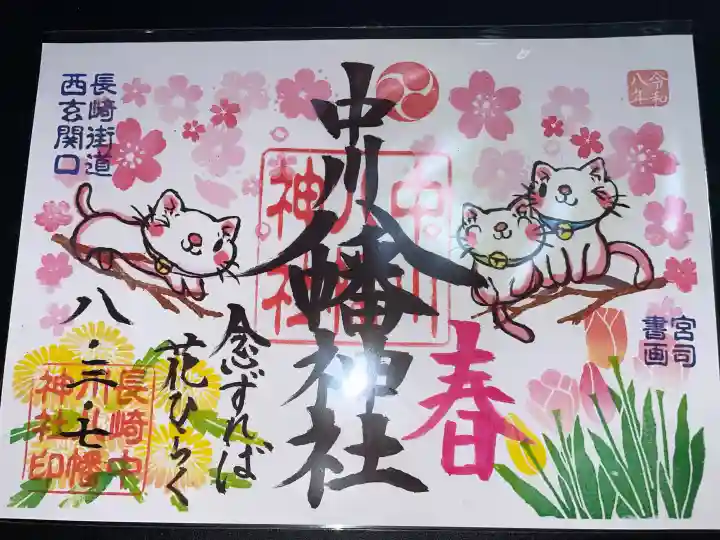 令和
八年
中川八幡神社
春
宮司
書画
長崎街道
西玄関口
念ずれば
花ひらく
八・三・七
中川
八幡
神社
長崎中
川八幡
神社印